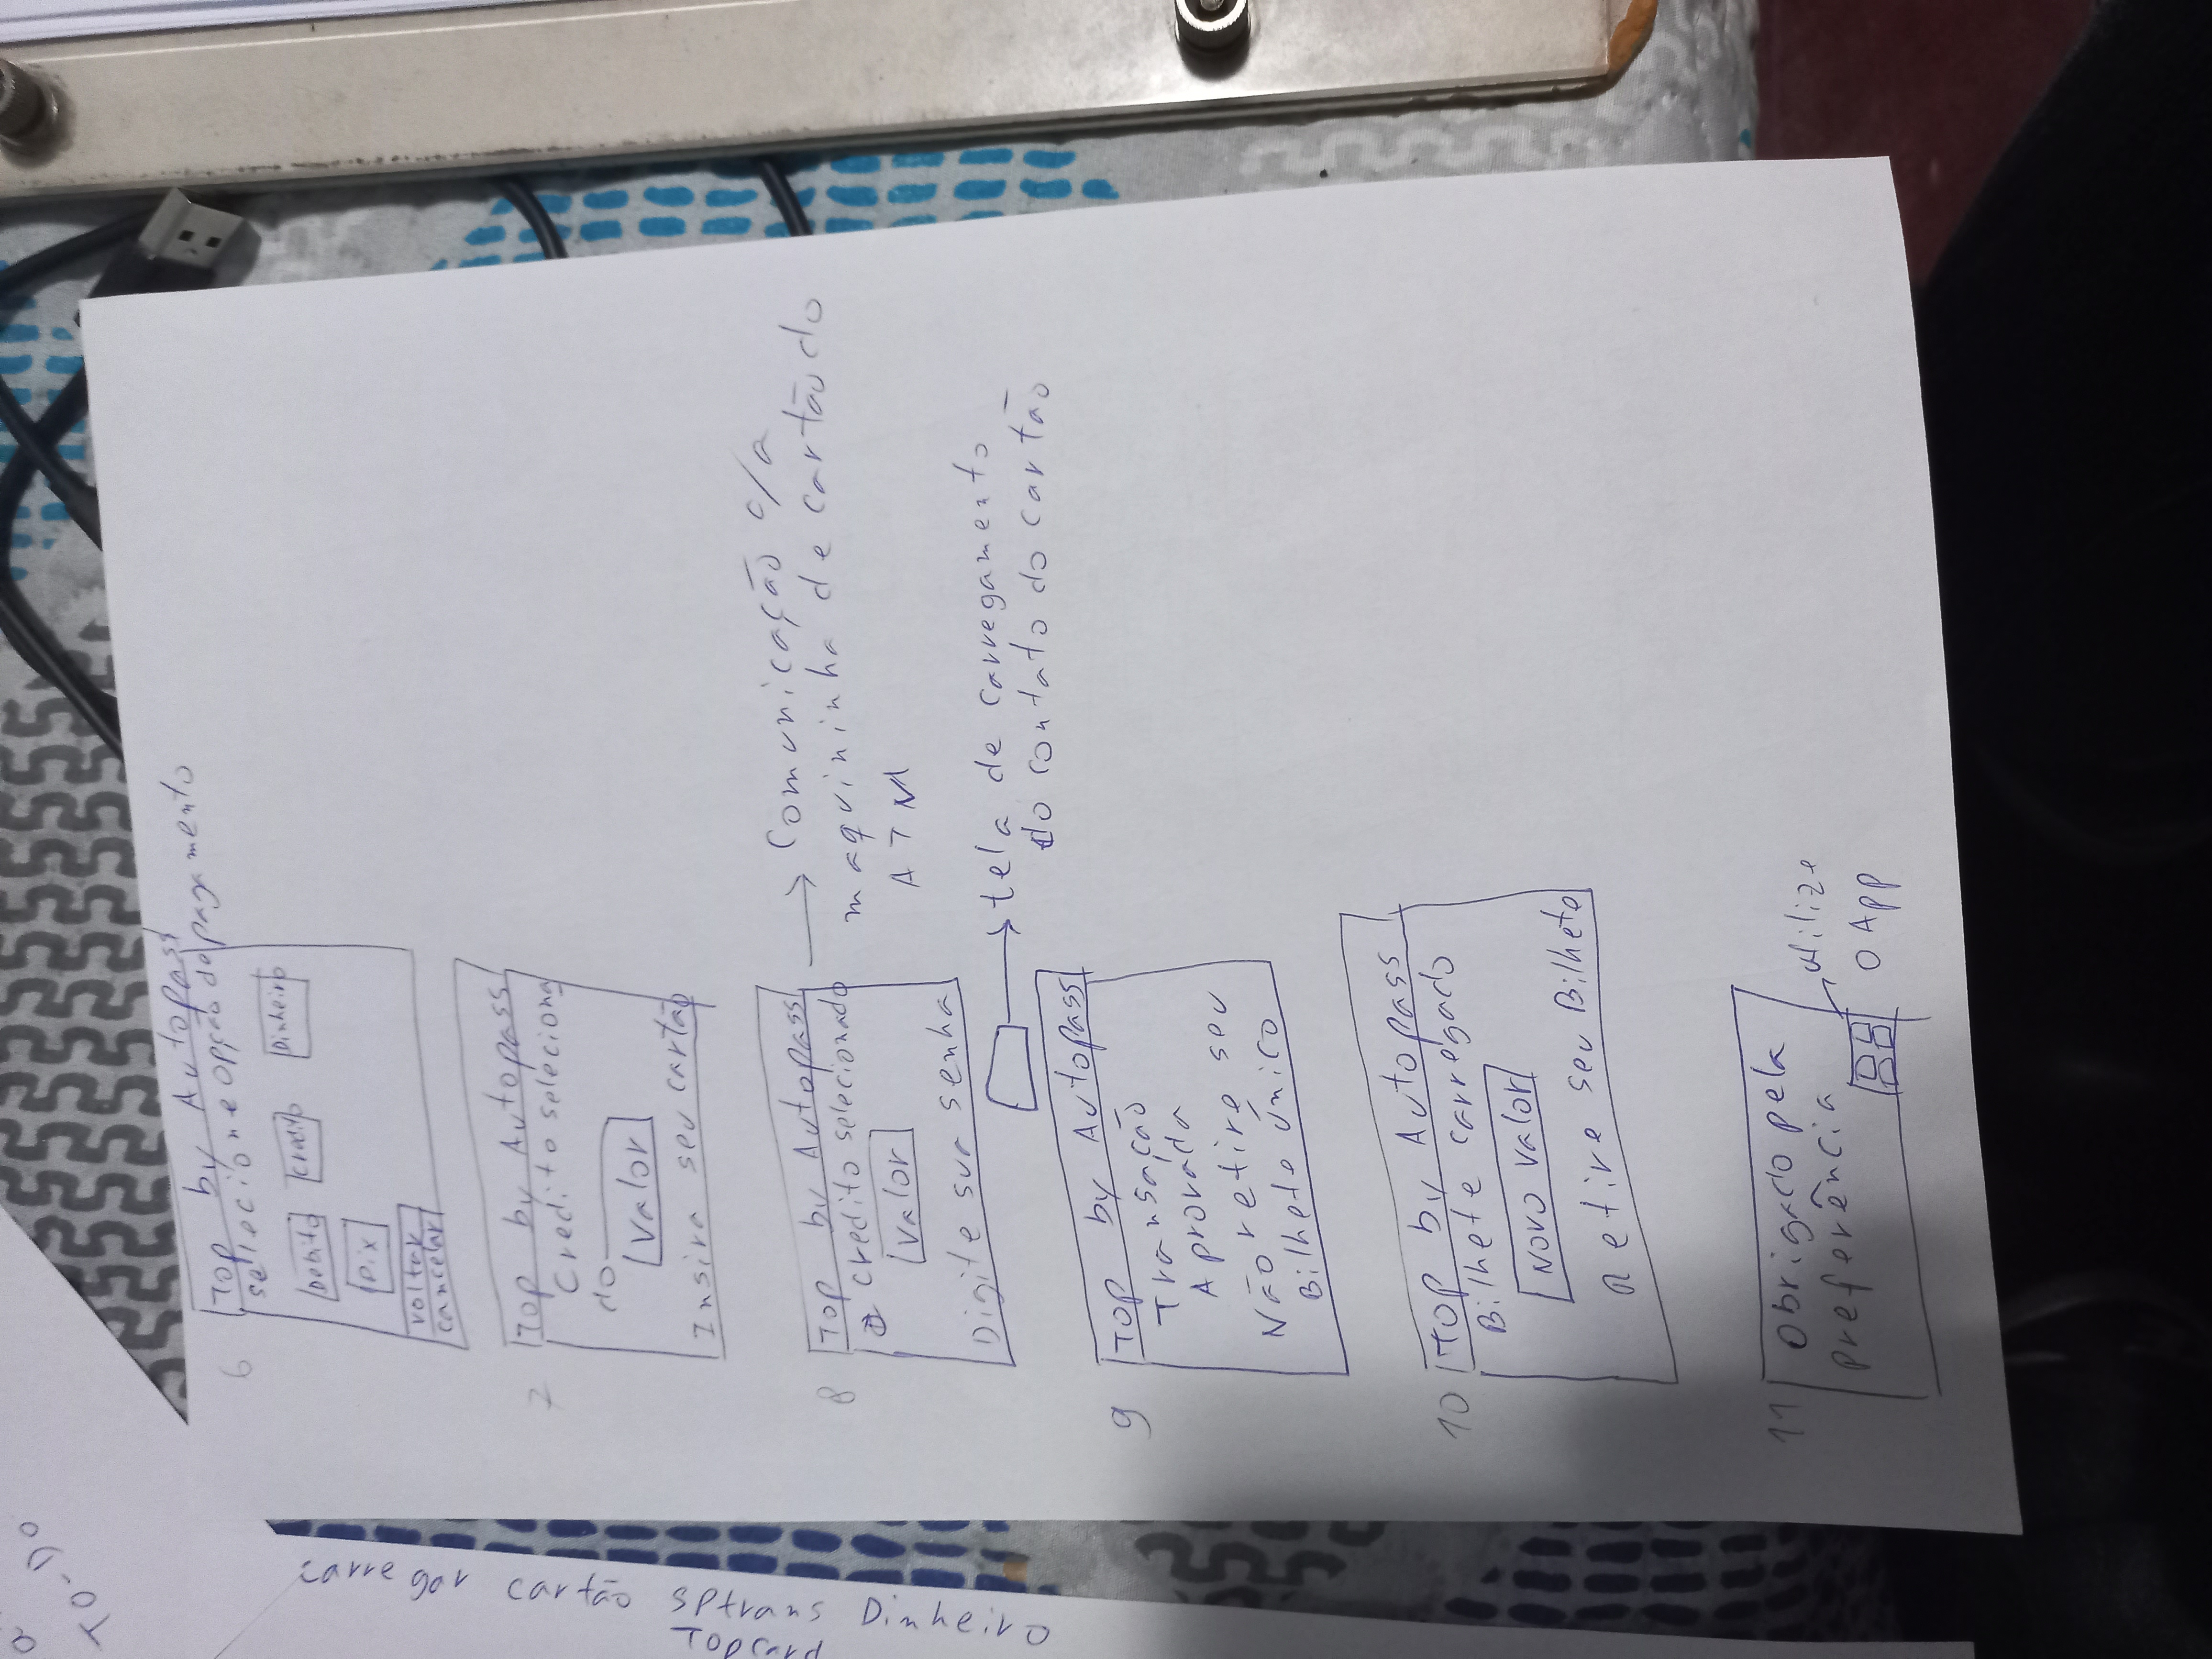 TO-DO
carregar cartão sptrans Dinheiro
Topcard
6
Top by Autopass
selecione opção de pagamento
Debito Credito Dinheiro
Pix
voltar
cancelar
7
Top by Autopass
Credito seleciona
do
Valor
Insira seu cartão
8
Top by Autopass
Credito selecionado
Valor
Digite sua senha
Comunicação c/a
maquininha de cartão do
ATM
tela de carregamento
do contato do cartão
9
Top by Autopass
Transação
Aprovada
Não retire seu
Bilhete Único
10
Top by Autopass
Bilhete carregado
Novo valor
Retire seu Bilhete
11
Obrigado pela
preferência
utilize
O App